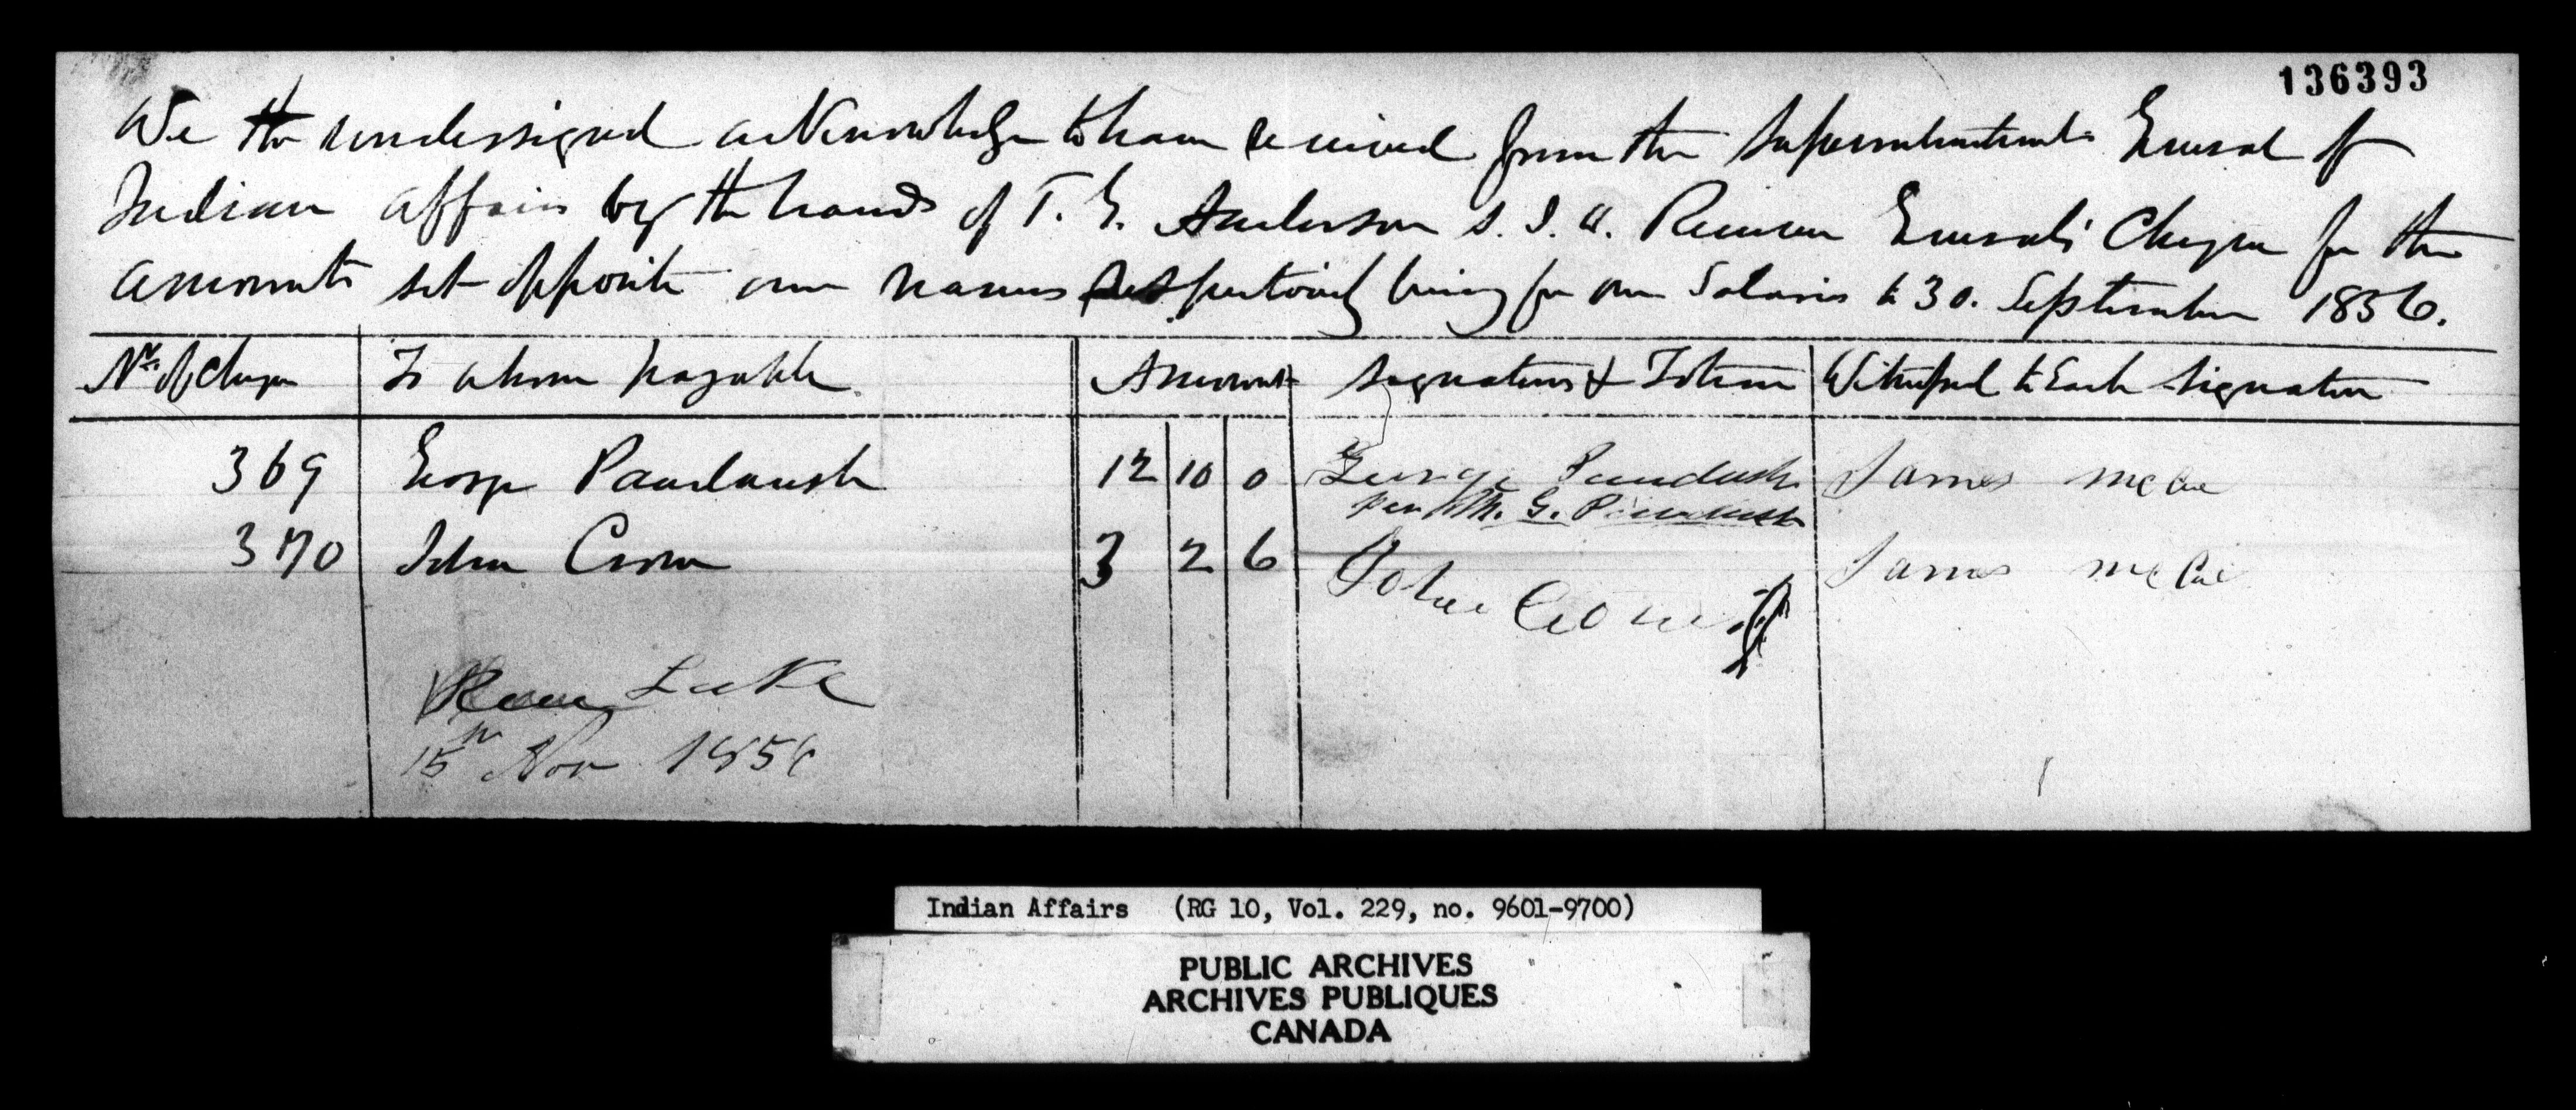 136393
We the undersigned acknowledge to have received from the Superintendent General of
Indian Affairs by the hands of T. G. Anderson S. I. A. Receiver Generals Cheques for the
amounts set opposite our names respectively being for our Salaries to 30. September 1856.
Nr. of Cheque To whom payable Amount Signatures & Totem Witnessed to Each Signature
369 George Paudaush 12 10 0 George Paudash James McCue
per M. G. Paudash
370 John Crow 3 2 6 John Crow James McCue
Rice Lake
15th Nov 1856
Indian Affairs (RG 10, Vol. 229, no. 9601-9700)
PUBLIC ARCHIVES
ARCHIVES PUBLIQUES
CANADA